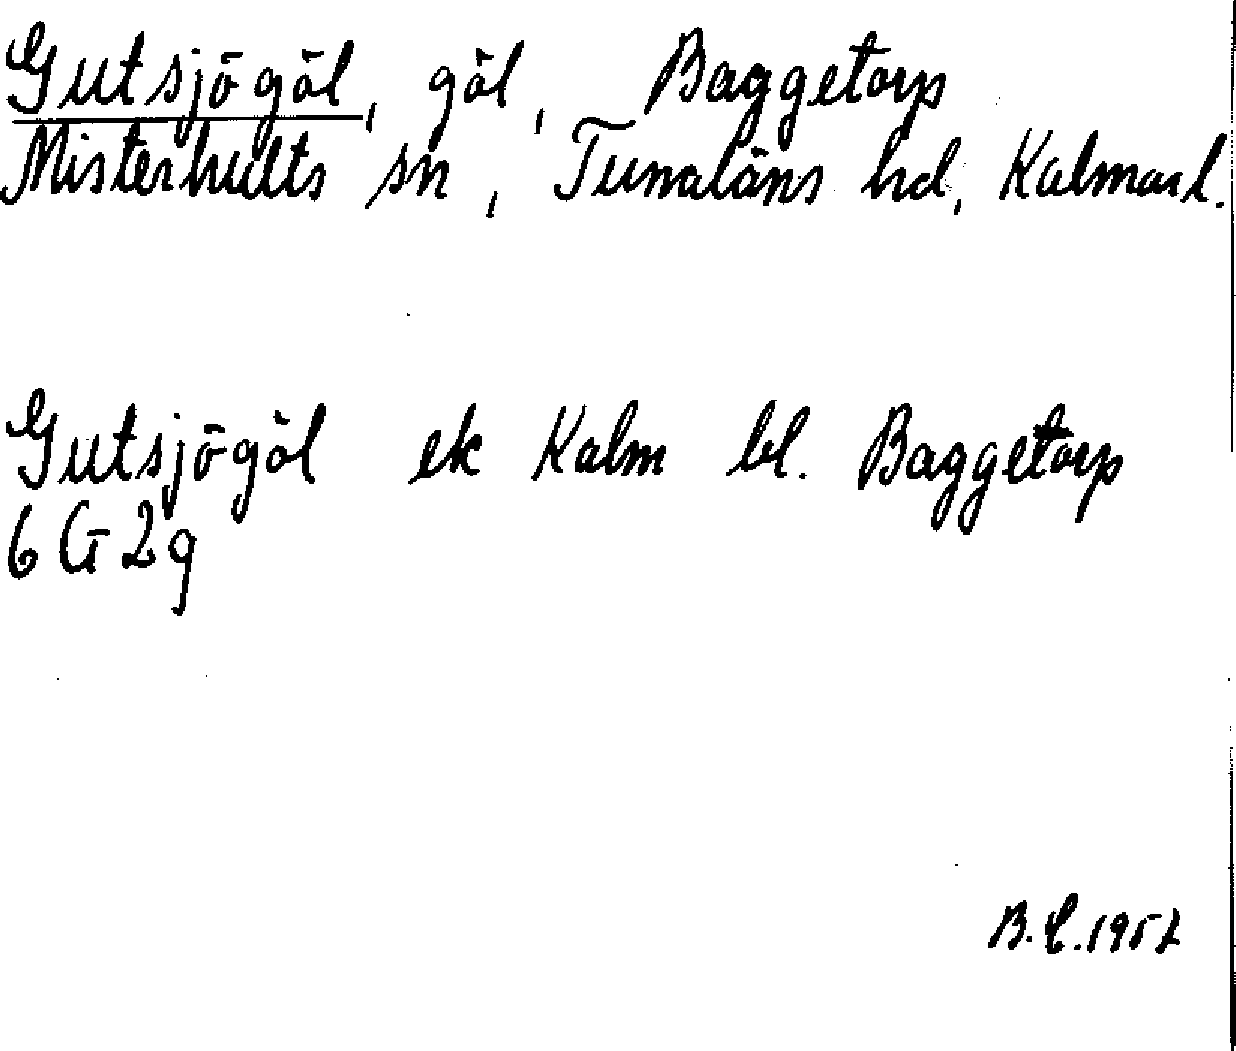 Gutsjögöl, göl, Baggetorp
Misterhults sn, Tunaläns hd, Kalmar l.
Gutsjögöl ek Kalm bl. Baggetorp
6 G 2g
B.C. 1952